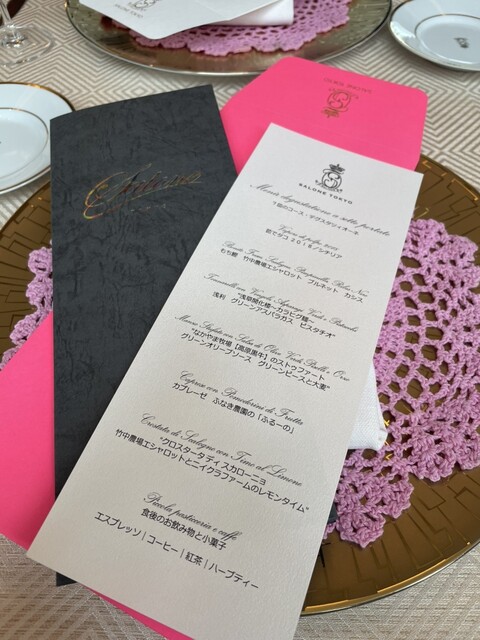 SALONE TOKYO
Menù degustazione a sette portate
7皿のコース・デグスタツィオーネ
茹でダコ 2018ノンチリア
もち豚 竹中農場エシャロット ブルネット カシス
"浅草開化楼〜カラヒグ麺〜
浅利 グリーンアスパラガス ピスタチオ"
"なかやま牧場【高原黒牛】のストゥファート
グリーンオリーブソース グリーンピースと大麦"
Caprese con Pomodorini di Frutta
カプレーゼ ふなき農園の「ふるーの」
Crostata di Scalogno con Timo al Limone
"クロスタータ ディ スカローニョ
竹中農場エシャロットとニイクラファームのレモンタイム"
Piccola pasticceria e caffè
食後のお飲み物と小菓子
エスプレッソ|コーヒー|紅茶|ハーブティー
Salone
SALONE TOKYO
SALONE TOKYO